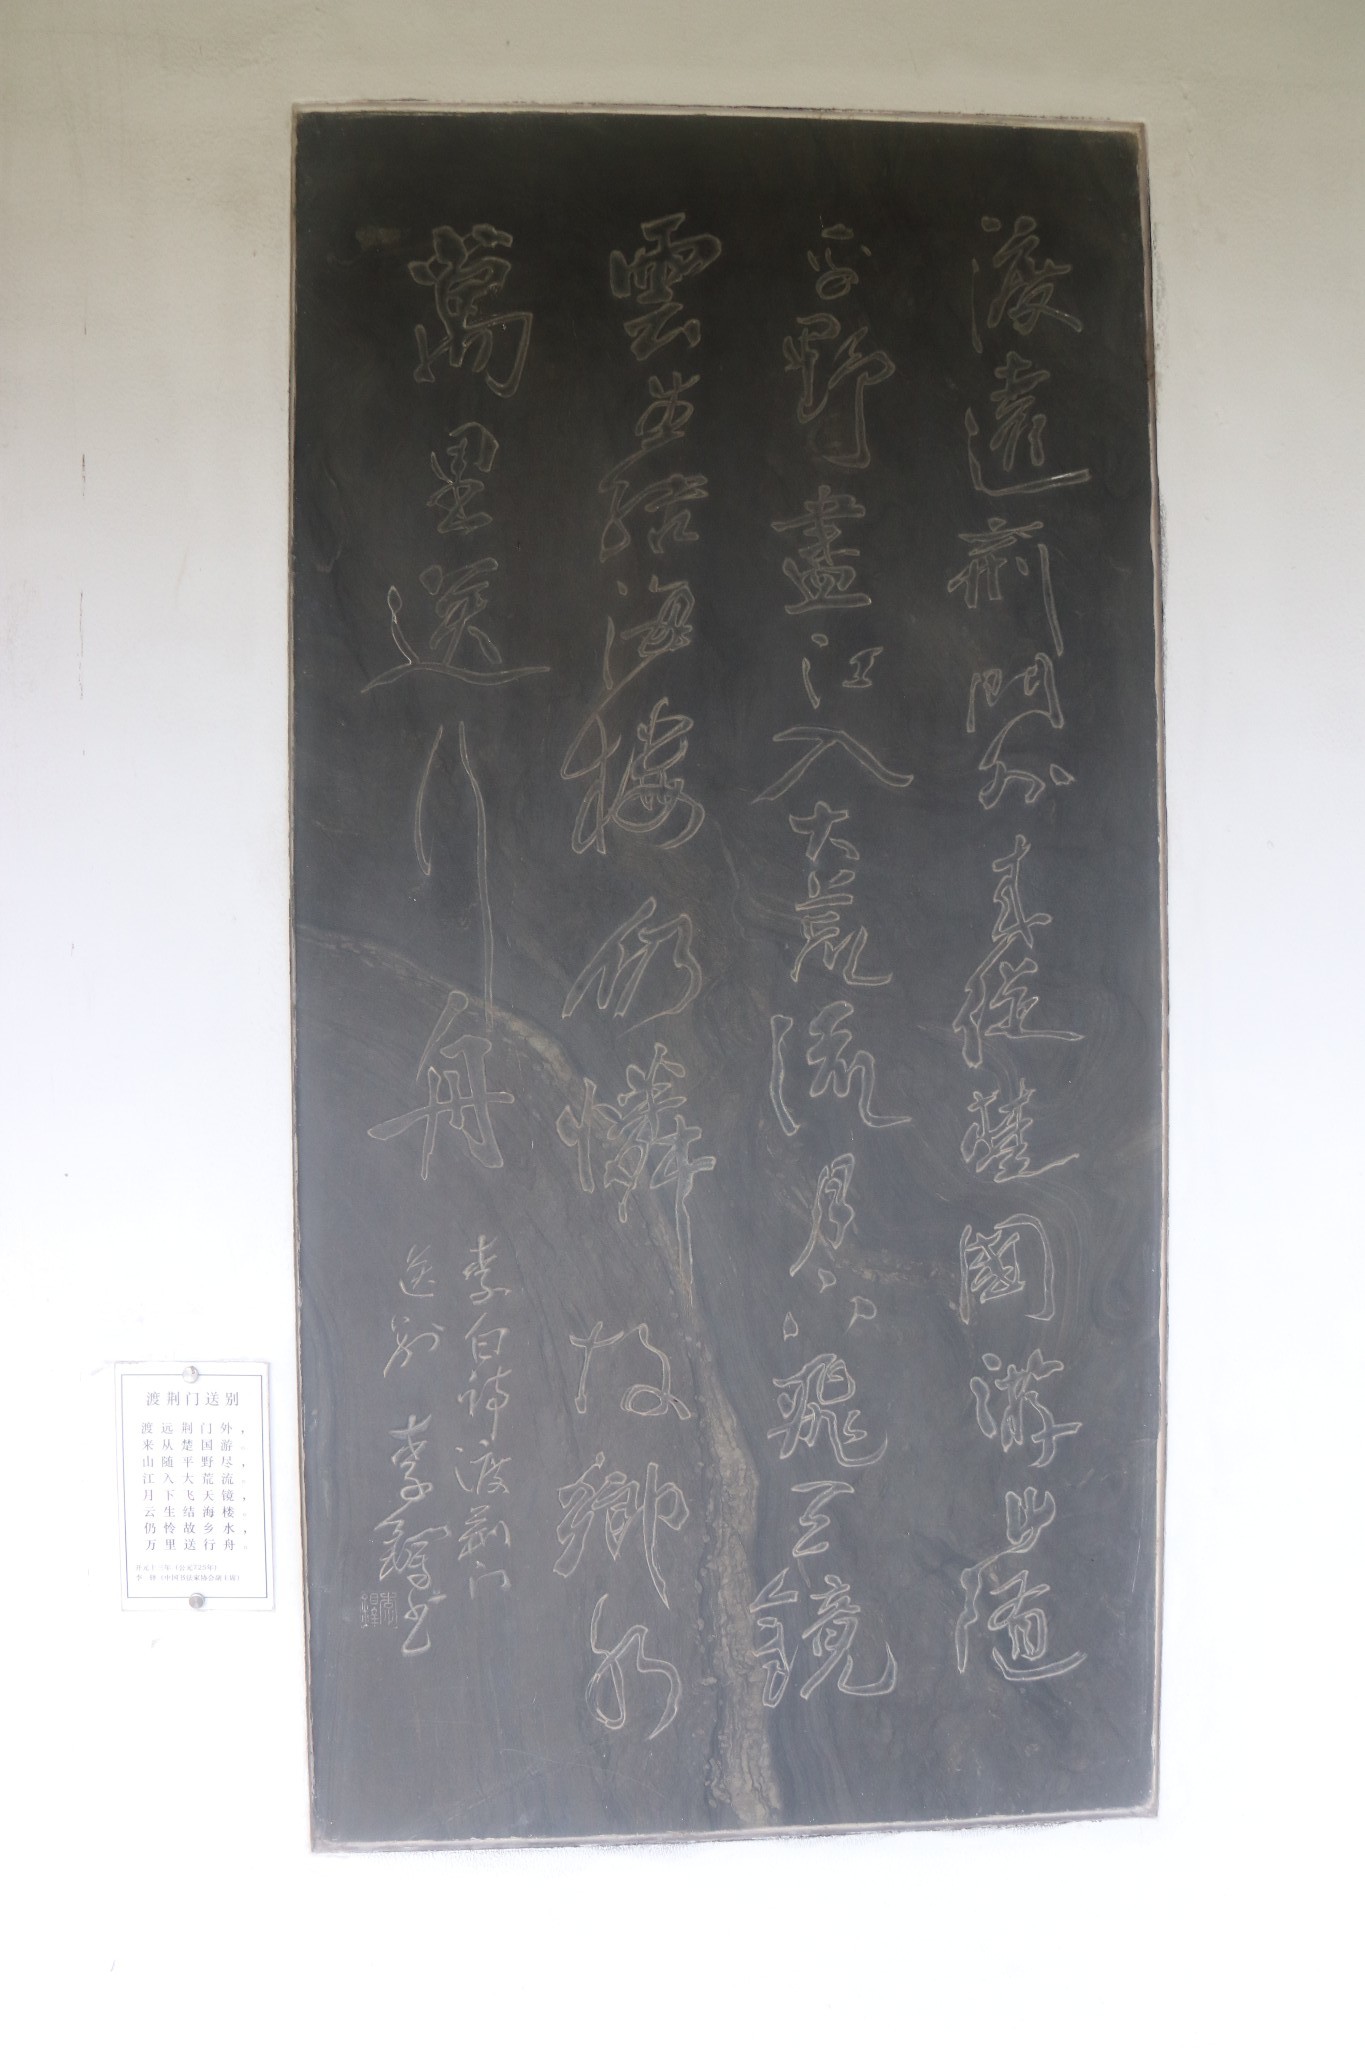 渡遠荊門外来從楚國遊山隨
平野盡江入大荒流月下飛天鏡
雲生結海樓仍憐故鄉水
萬里送行舟
李白詩渡荊门
送别 李鐸书
渡荆门送别
渡远荆门外，
来从楚国游。
山随平野尽，
江入大荒流。
月下飞天镜，
云生结海楼。
仍怜故乡水，
万里送行舟。
开元十三年（公元725年）
李 铎（中国书法家协会副主席）